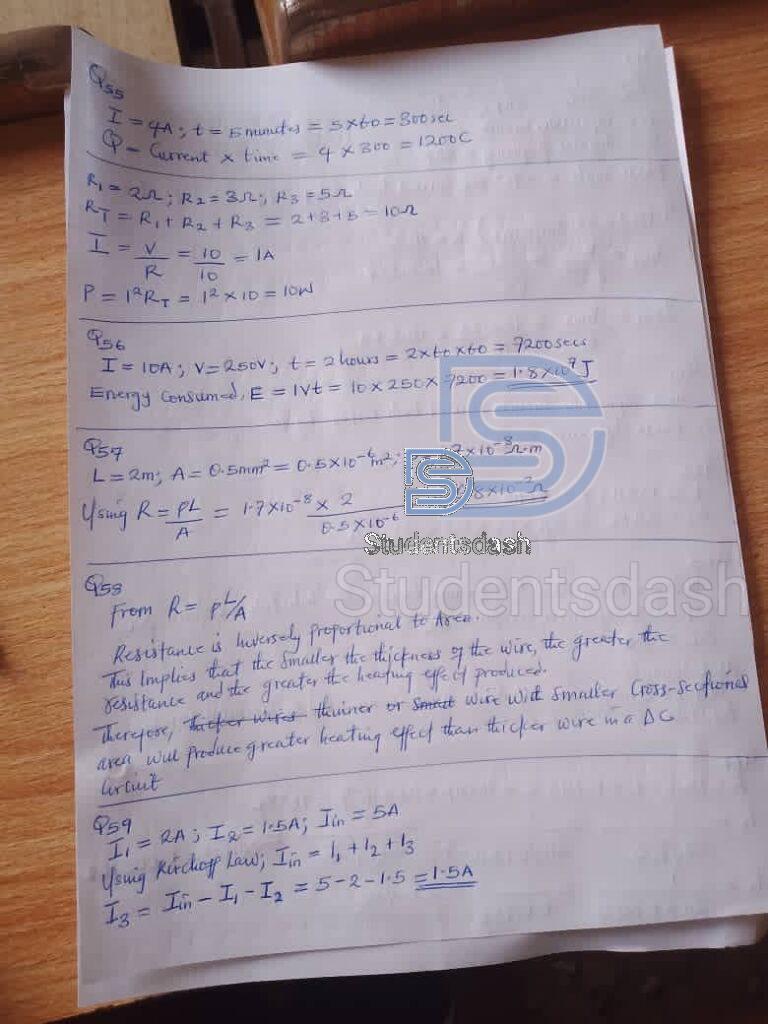 Q55
I = 4A; t = 5 minutes = 5x60 = 300 sec
Q = Current x time = 4 x 300 = 1200C
R1 = 2Ω; R2 = 3Ω; R3 = 5Ω
RT = R1 + R2 + R3 = 2+3+5 = 10Ω
I = V/R = 10/10 = 1A
P = I²RT = 1² x 10 = 10W
Q56
I = 10A; V = 250V; t = 2 hours = 2x60x60 = 7200secs
Energy Consumed, E = IVt = 10 x 250 x 7200 = 1.8x10⁷J
Q57
L = 2m; A = 0.5mm² = 0.5x10⁻⁶m²; 7x10⁻⁸Ω.m
Using R = ρL/A = 1.7x10⁻⁸ x 2/0.5x10⁻⁶ 8x10⁻²Ω
Studentsdash
Q58
Studentsdash
From R = ρL/A
Resistance is inversely proportional to Area.
This implies that the smaller the thickness of the wire, the greater the
resistance and the greater the heating effect produced.
Therefore, thicker wires thinner or Small wire with smaller Cross-sectional
area will produce greater heating effect than thicker wire in a DC
Circuit
Q59
I1 = 2A; I2 = 1.5A; Iin = 5A
Using Kirchoff Law; Iin = I1 + I2 + I3
I3 = Iin - I1 - I2 = 5-2-1.5 = 1.5A